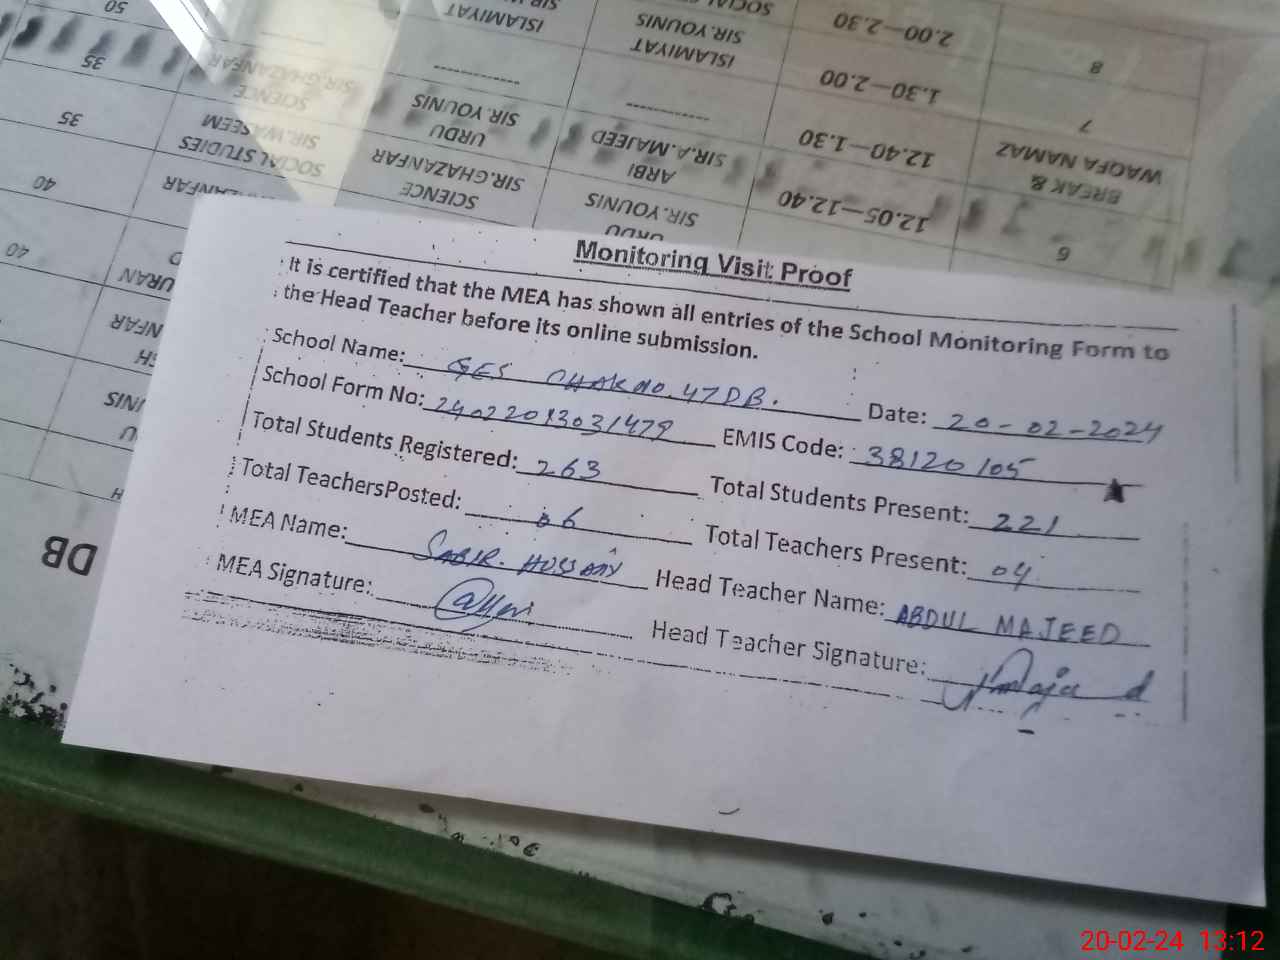 Monitoring Visit Proof
It is certified that the MEA has shown all entries of the School Monitoring Form to
the Head Teacher before its online submission.
School Name: GES CHAK NO. 47 DB. Date: 20-02-2024
School Form No: 24022013031479 EMIS Code: 38120105
Total Students Registered: 263 Total Students Present: 221
Total TeachersPosted: 06 Total Teachers Present: 04
MEA Name: SABIR. HUSSAIN Head Teacher Name: ABDUL MAJEED
MEA Signature: Head Teacher Signature:
6 12.05—12.40 SIR.YOUNIS SCIENCE SIR.GHAZANFAR SOCIAL STUDIES SIR.WASEEM 35
BREAK & WAQFA NAMAZ 12.40—1.30
7 1.30—2.00 ARBI SIR.A.MAJEED URDU SIR.YOUNIS SCIENCE SIR.GHAZANFAR 35
8 2.00—2.30 ISLAMIYAT SIR.YOUNIS ISLAMIYAT 50
40
40
DB
20-02-24 13:12